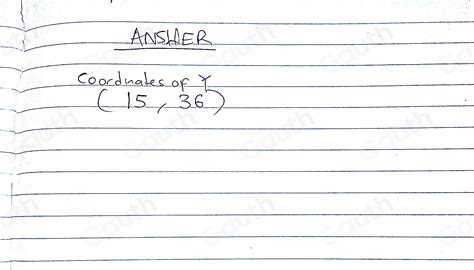 ANSWER
Coordnates of Y
( 15 , 36 )